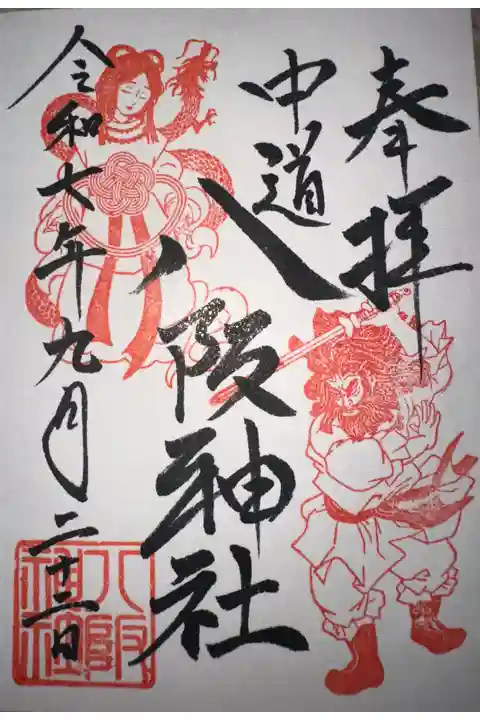 奉拝
中道
八阪神社
令和七年九月二十三日
八阪
神社